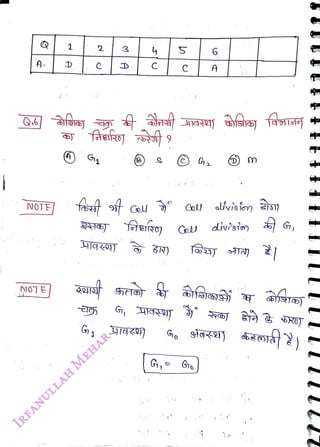 Q 1 2 3 4 5 6
A. D C D C C A
Q.6 कोशिका चक्र की कौनसी प्रावस्था कोशिका विभाजन
का निर्धारण करेगी ?
Ⓐ G1 Ⓑ S Ⓒ G2 Ⓓ M
NOTE किसी भी Cell में Cell division होगा
इसका निर्धारण Cell division की G1
प्रावस्था के द्वारा किया जाता है।
NOTE स्थायी ऊतको की कोशिकाओं का कोशिका
चक्र G1 प्रावस्था में रूका होने के कारण
G1 प्रावस्था G0 अवस्था कहलाती है।
G1 = G0
IRFANULLAH MEHAR